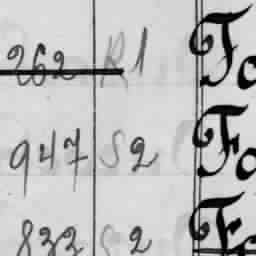 262 R1 To
947 S2 Fo
832 S2 Fo